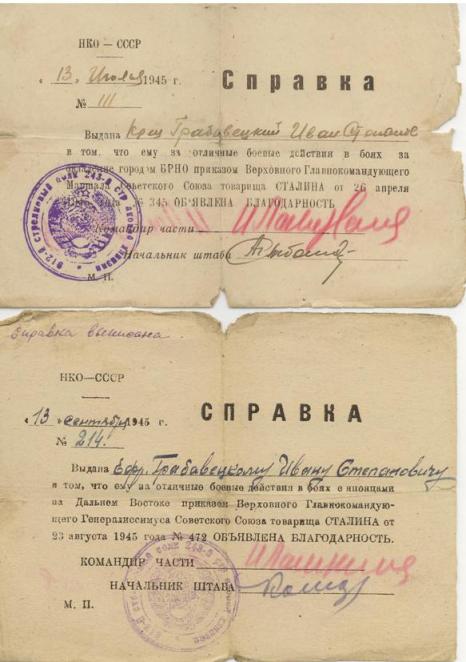 НКО — СССР
« 13 » Июля 1945 г.
Справка
№ 111
Выдана Кр-цу Грабавецкий Иван Степанов
в том, что ему за отличные боевые действия в боях за
овладение городом БРНО приказом Верховного Главнокомандующего
Маршала Советского Союза товарища СТАЛИНА от 26 апреля
345 ОБЪЯВЛЕНА БЛАГОДАРНОСТЬ
Командир части
Начальник штаба
М. П.
912-й стрелковый полк 243-й стрелковой дивизии
Справка выписана
НКО—СССР
« 13 » сентября 1945 г.
СПРАВКА
№ 214
Выдана Ефр. Грабавецкому Ивану Степановичу
в том, что ему за отличные боевые действия в боях с японцами
на Дальнем Востоке приказом Верховного Главнокомандую-
щего Генералиссимуса Советского Союза товарища СТАЛИНА от
23 августа 1945 года № 472 ОБЪЯВЛЕНА БЛАГОДАРНОСТЬ.
КОМАНДИР ЧАСТИ
НАЧАЛЬНИК ШТАБА
М. П.